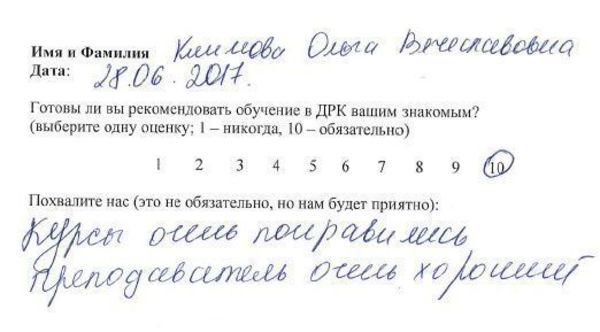 Имя и Фамилия Климова Ольга Вячеславовна
Дата: 28.06.2017.
Готовы ли вы рекомендовать обучение в ДРК вашим знакомым?
(выберите одну оценку; 1 – никогда, 10 – обязательно)
1 2 3 4 5 6 7 8 9 10
Похвалите нас (это не обязательно, но нам будет приятно):
Курсы очень понравились
преподаватель очень хороший